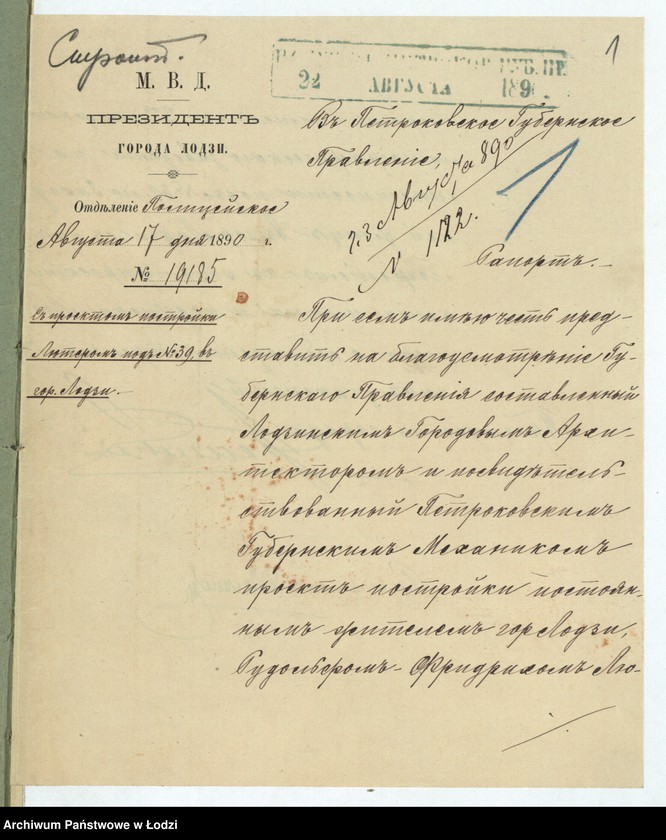 Строит.
1
22 АВГУСТА 189
М. В. Д.
ПРЕЗИДЕНТЪ
ГОРОДА ЛОДЗИ.
Отдѣленіе Полицейское
Августа 17 дня 1890 г.
№ 19185
Съ проектомъ постройки
Лютеромъ подъ № 39, въ
гор. Лодзи.
Въ Петроковское Губернское
Правленіе,
23 Августа 890
N 1122.
Рапортъ.
При семъ имѣю честь пред-
ставить на благоусмотрѣніе Гу-
бернскаго Правленія составленный
Лодзинскимъ Городовымъ Архи-
текторомъ и посвидѣтель-
ствованный Петроковскимъ
Губернскимъ Механикомъ
проектъ постройки постоян-
нымъ жителемъ гор Лодзи,
Рудольфомъ-Фридрихомъ Лю-
Archiwum Państwowe w Łodzi